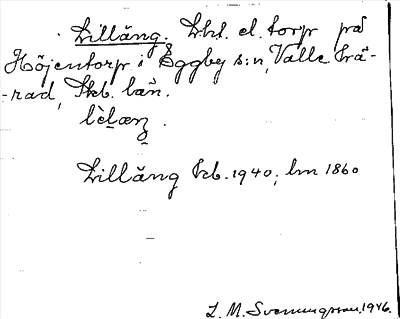 Lilläng. Lht. el. torp på
Höjentorp i Eggby s:n, Valle hä-
-rad, Skb. län.
Lilläng kb. 1940; hm 1860
L. M. Svenungsson, 1946.